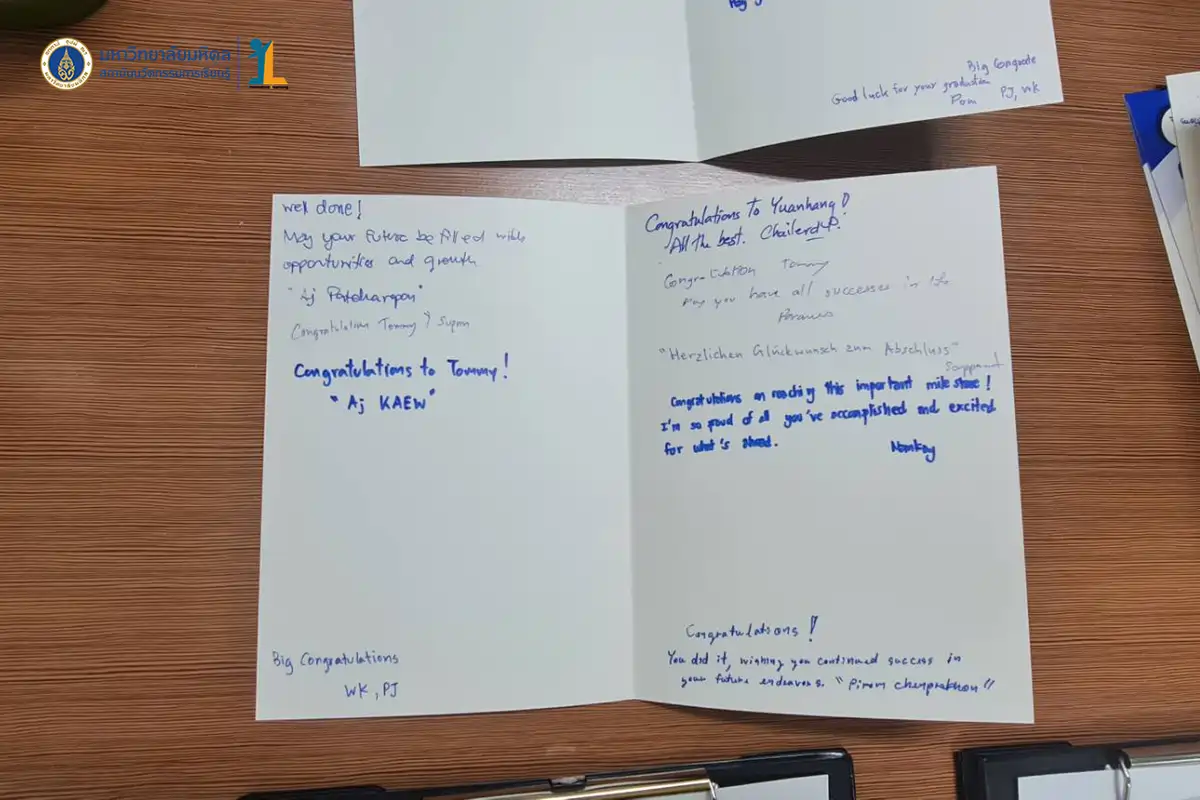 มหาวิทยาลัยมหิดล
สถาบันนวัตกรรมการเรียนรู้
Big Congrats
Good luck for your graduation
Pom PJ, WK
well done!
May your future be filled with
opportunities and growth
"Aj Patcharapan"
Congratulation Tommy Supan
Congratulations to Tommy!
"Aj KAEW"
Big Congratulations
WK, PJ
Congratulations To Yuanhang!
All the best. Chailerd P.
Congratulation Tommy
May you have all successes in life
"Herzlichen Glückwunsch zum Abschluss"
Congratulations on reaching this important mile stone!
I'm so proud of all you've accomplished and excited
for what's ahead.
Namkay
Congratulations!
You did it, wishing you continued success in
your future endeavors. "Pirom Chenprakhon"